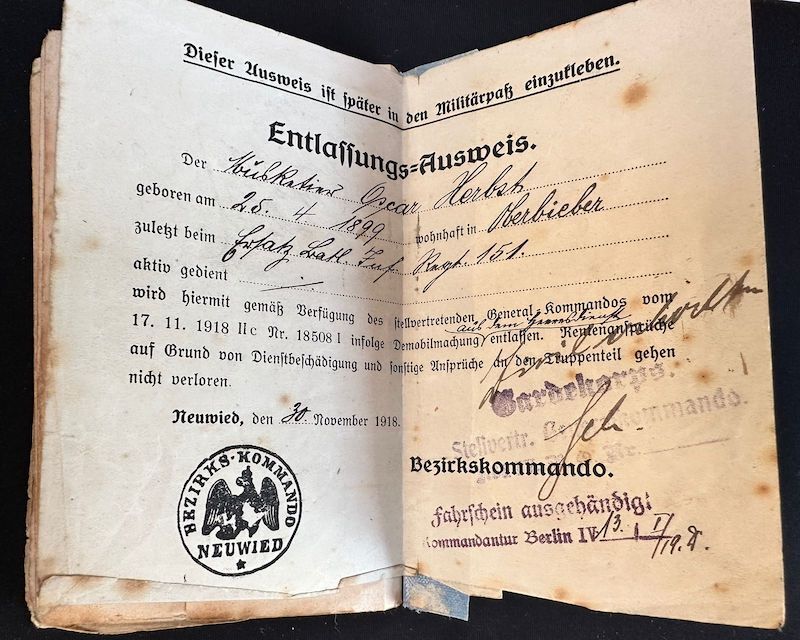 Dieser Ausweis ist später in den Militärpaß einzukleben.
Entlassungs=Ausweis.
Der Musketier Oscar Herbst
geboren am 25. 4 1899 wohnhaft in Oberbieber
zuletzt beim Ersatz Batl. Inf. Regt. 151.
aktiv gedient
wird hiermit gemäß Verfügung des stellvertretenden General-Kommandos vom
aus dem Heeresdienst
17. 11. 1918 IIc Nr. 18508 I infolge Demobilmachung entlassen. Rentenansprüche
auf Grund von Dienstbeschädigung und sonstige Ansprüche an den Truppenteil gehen
nicht verloren.
Gardekorps.
Neuwied, den 30. November 1918.
Stellvertr.
Bezirkskommando.
BEZIRKS-KOMMANDO
NEUWIED
Fahrschein ausgehändigt
Kommandantur Berlin IV 13. I 19.